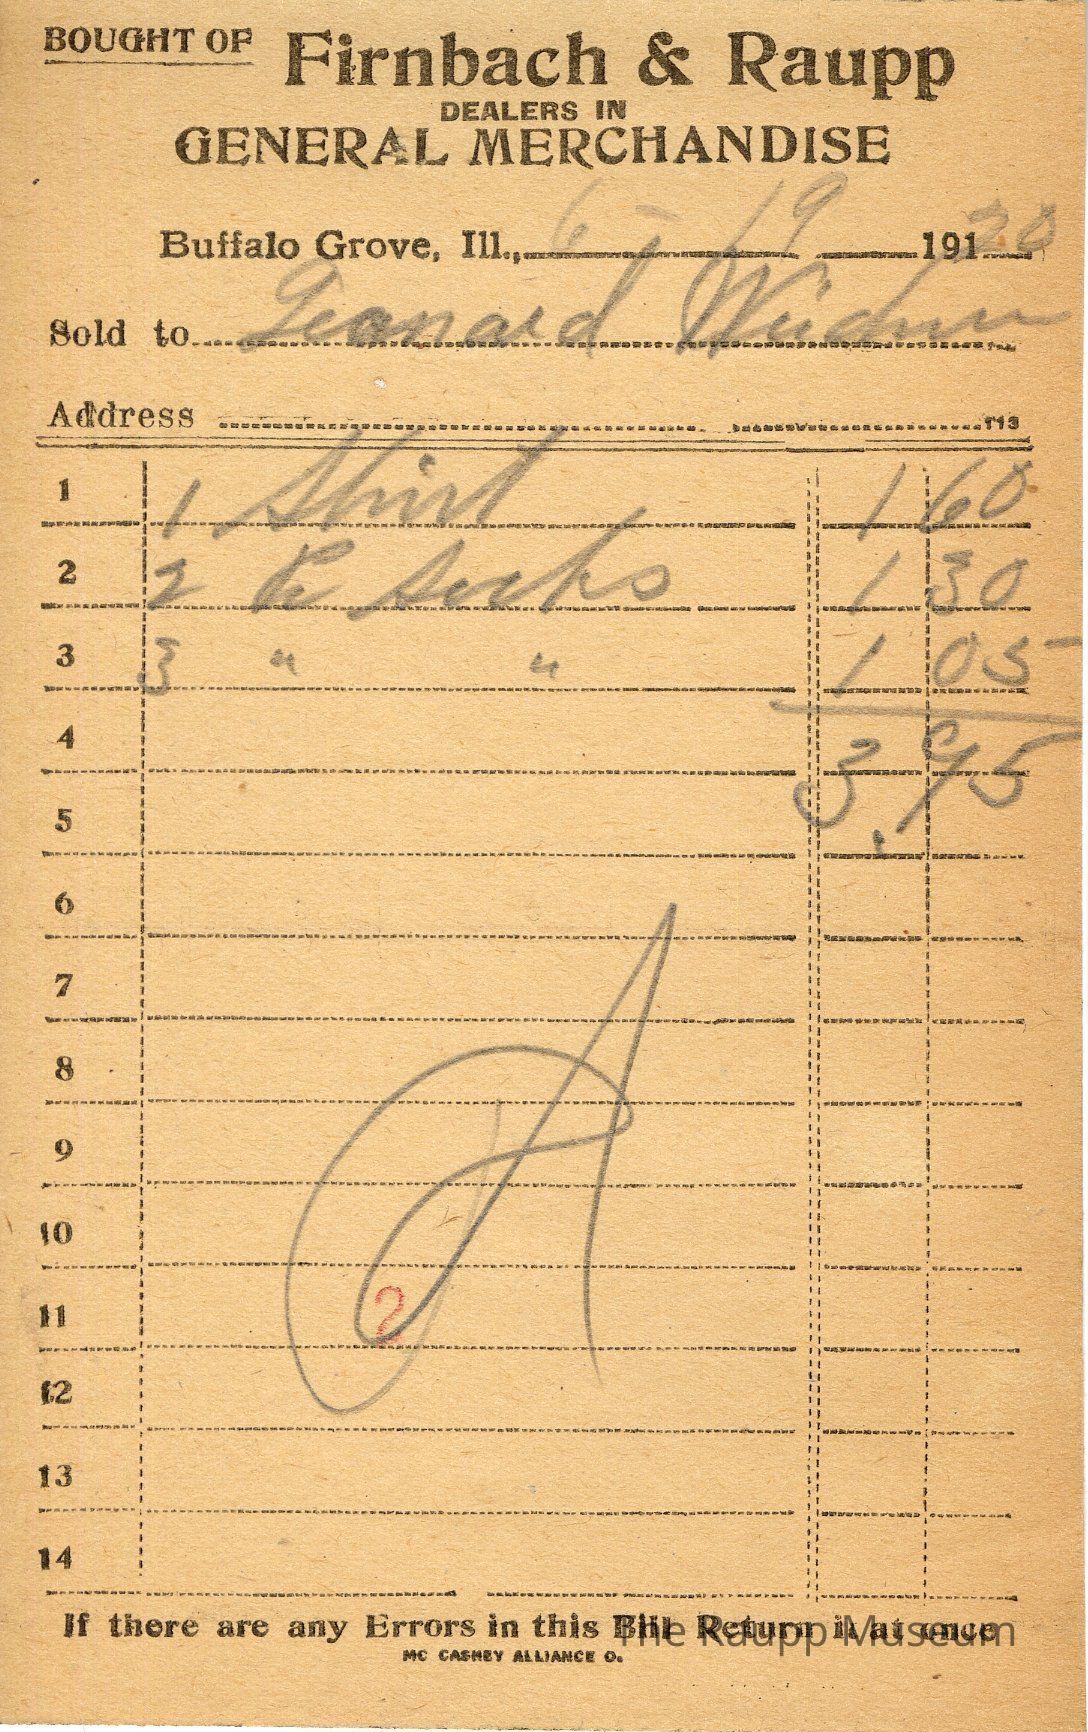 BOUGHT OF Firnbach & Raupp
DEALERS IN
GENERAL MERCHANDISE
Buffalo Grove, Ill., 6-19 191 20
Sold to Leonard
Address T13
1 1 Shirt 1 60
2 2 socks 1 30
3 3 " " 1 05
4 3.95
5
6
7
8
9
10
11 2
12
13
14
If there are any Errors in this Bill Return it at once
The Raupp Museum
MC CASKEY ALLIANCE O.